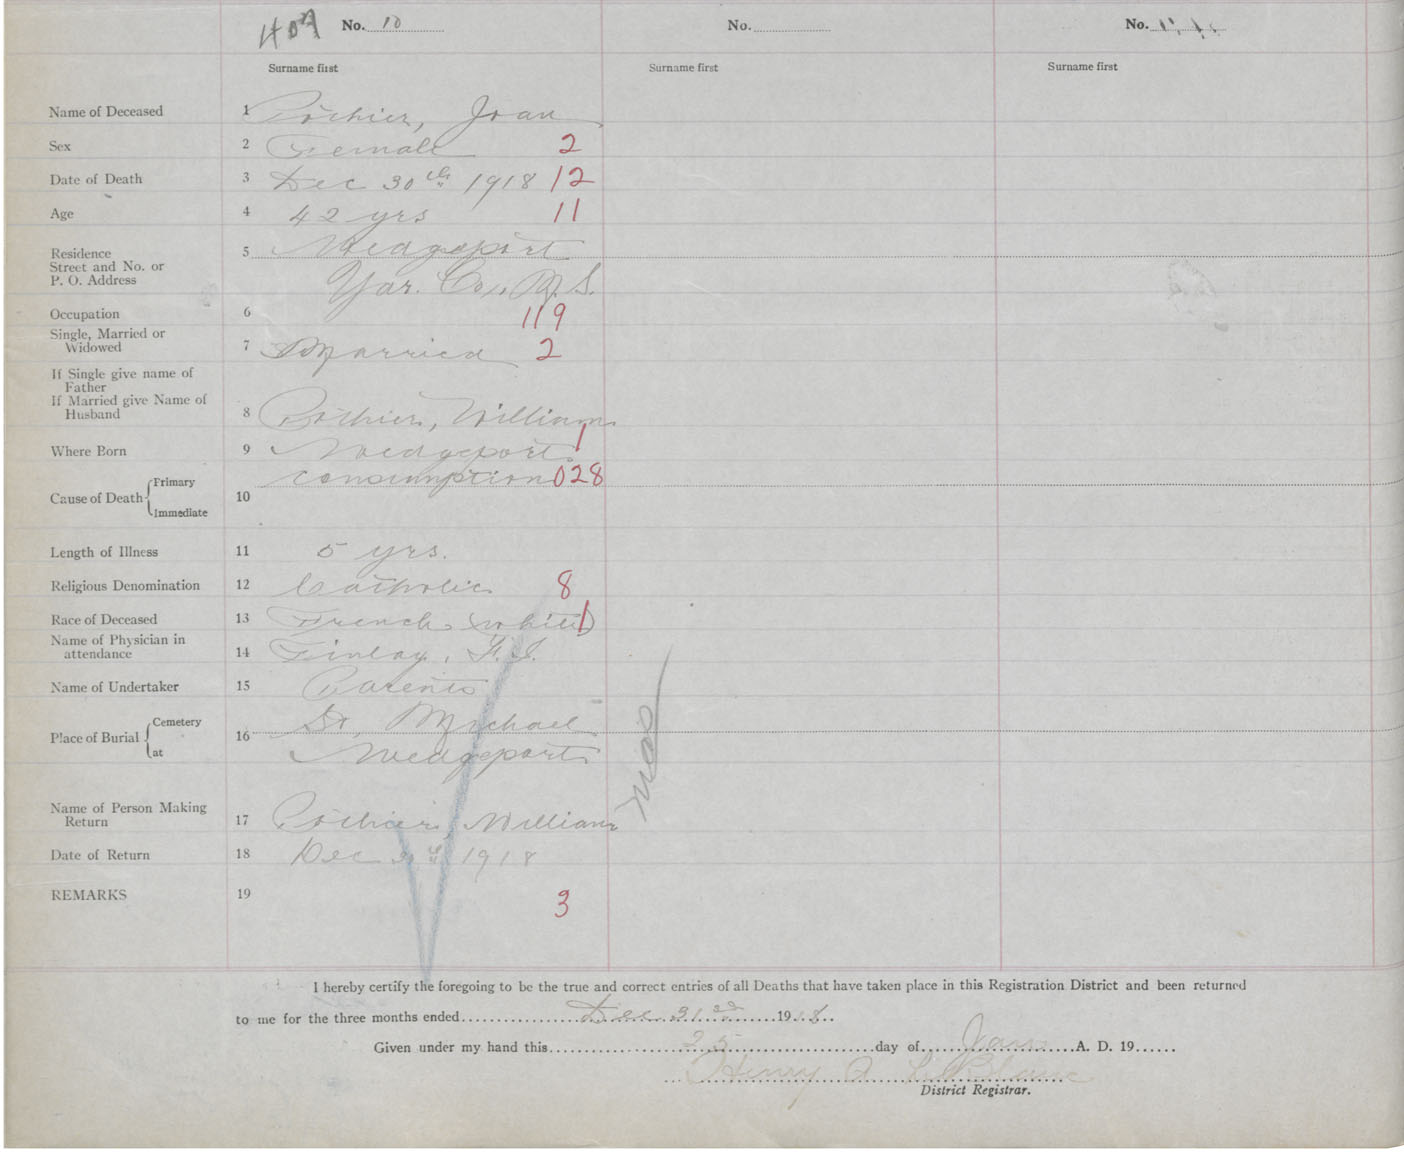 No. 10 No. No.
Surname first Surname first Surname first
Name of Deceased 1 Pothier, Joan
Sex 2 Female 2
Date of Death 3 Dec 30th 1918 12
Age 4 42 yrs 11
Residence 5 Wedgeport
Street and No. or
P. O. Address Yar. Co., N.S.
Occupation 6 119
Single, Married or
Widowed 7 Married 2
If Single give name of
Father
If Married give Name of
Husband 8 Pothier, William
Where Born 9 Wedgeport. 1
Cause of Death Primary consumption 028
10
Immediate
Length of Illness 11 5 yrs.
Religious Denomination 12 Catholic 8
Race of Deceased 13 French (white) 1
Name of Physician in
attendance 14 Finlay, F. J.
Name of Undertaker 15 Parents
Place of Burial Cemetery 16 St. Michael
at Wedgeport
Name of Person Making
Return 17 Pothier, William
Date of Return 18 Dec 1918
REMARKS 19 3
I hereby certify the foregoing to be the true and correct entries of all Deaths that have taken place in this Registration District and been returned
to me for the three months ended Dec 31st 1918
Given under my hand this 25 day of Jan A. D. 19
Henry A LeBlanc
District Registrar.